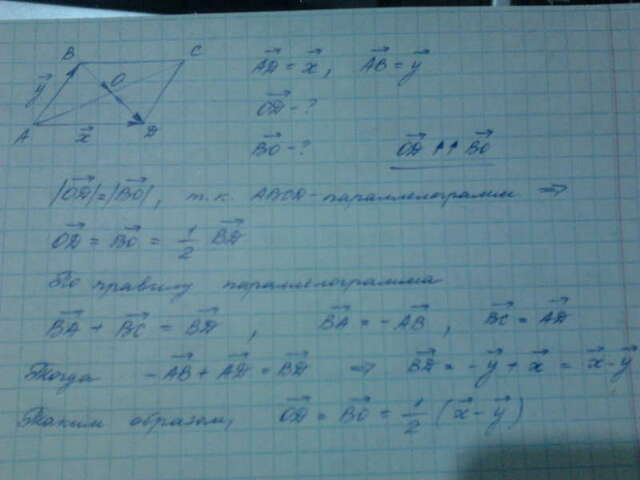 B C
O
y⃗
A x⃗ D
AD⃗ = x⃗, AB⃗ = y⃗
OD⃗ - ?
BO⃗ - ? OD⃗ ↑↑ BO⃗
|OD⃗| = |BO⃗|, т.к. ABCD - параллелограмм ⇒
OD⃗ = BO⃗ = 1/2 BD⃗
По правилу параллелограмма
BA⃗ + BC⃗ = BD⃗, BA⃗ = -AB⃗, BC⃗ = AD⃗
Тогда -AB⃗ + AD⃗ = BD⃗ ⇒ BD⃗ = -y⃗ + x⃗ = x⃗ - y⃗
Таким образом, OD⃗ = BO⃗ = 1/2 (x⃗ - y⃗)